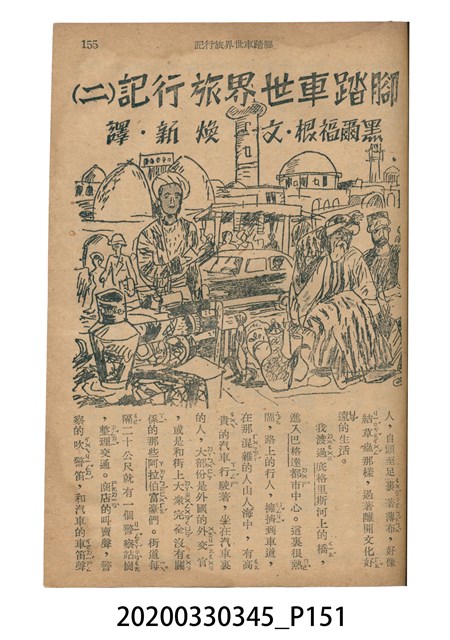 155
腳踏車世界旅行記
腳踏車世界旅行記(二)
黑爾福根・文 煥新・譯
人,自頭至足裹著薄布,好像
結草蟲那樣,過著離開文化好
遠的生活。
我渡過底格里斯河上的橋,
進入巴格達都市中心。這裏很熱
鬧,路上的行人,擁擠到車道,
在那混雜的人山人海中,有高
貴的汽車行駛著,坐在汽車裏
的人,大部份是外國的外交官
,或是和街上大衆完全沒有關
係的那些阿拉伯富豪們。街道每
隔二十公尺就有一個警察站崗
,整理交通。商店的叫賣聲,警
察的吹警笛,和汽車的車笛聲
20200330345_P151